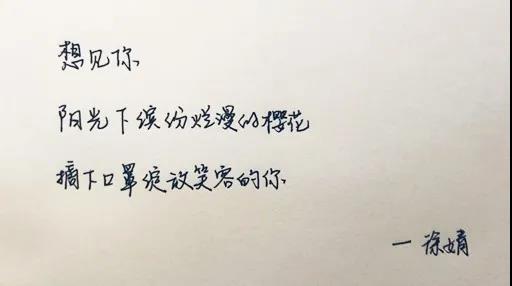 想见你
阳光下缤纷烂漫的樱花
摘下口罩绽放笑容的你
— 徐娟